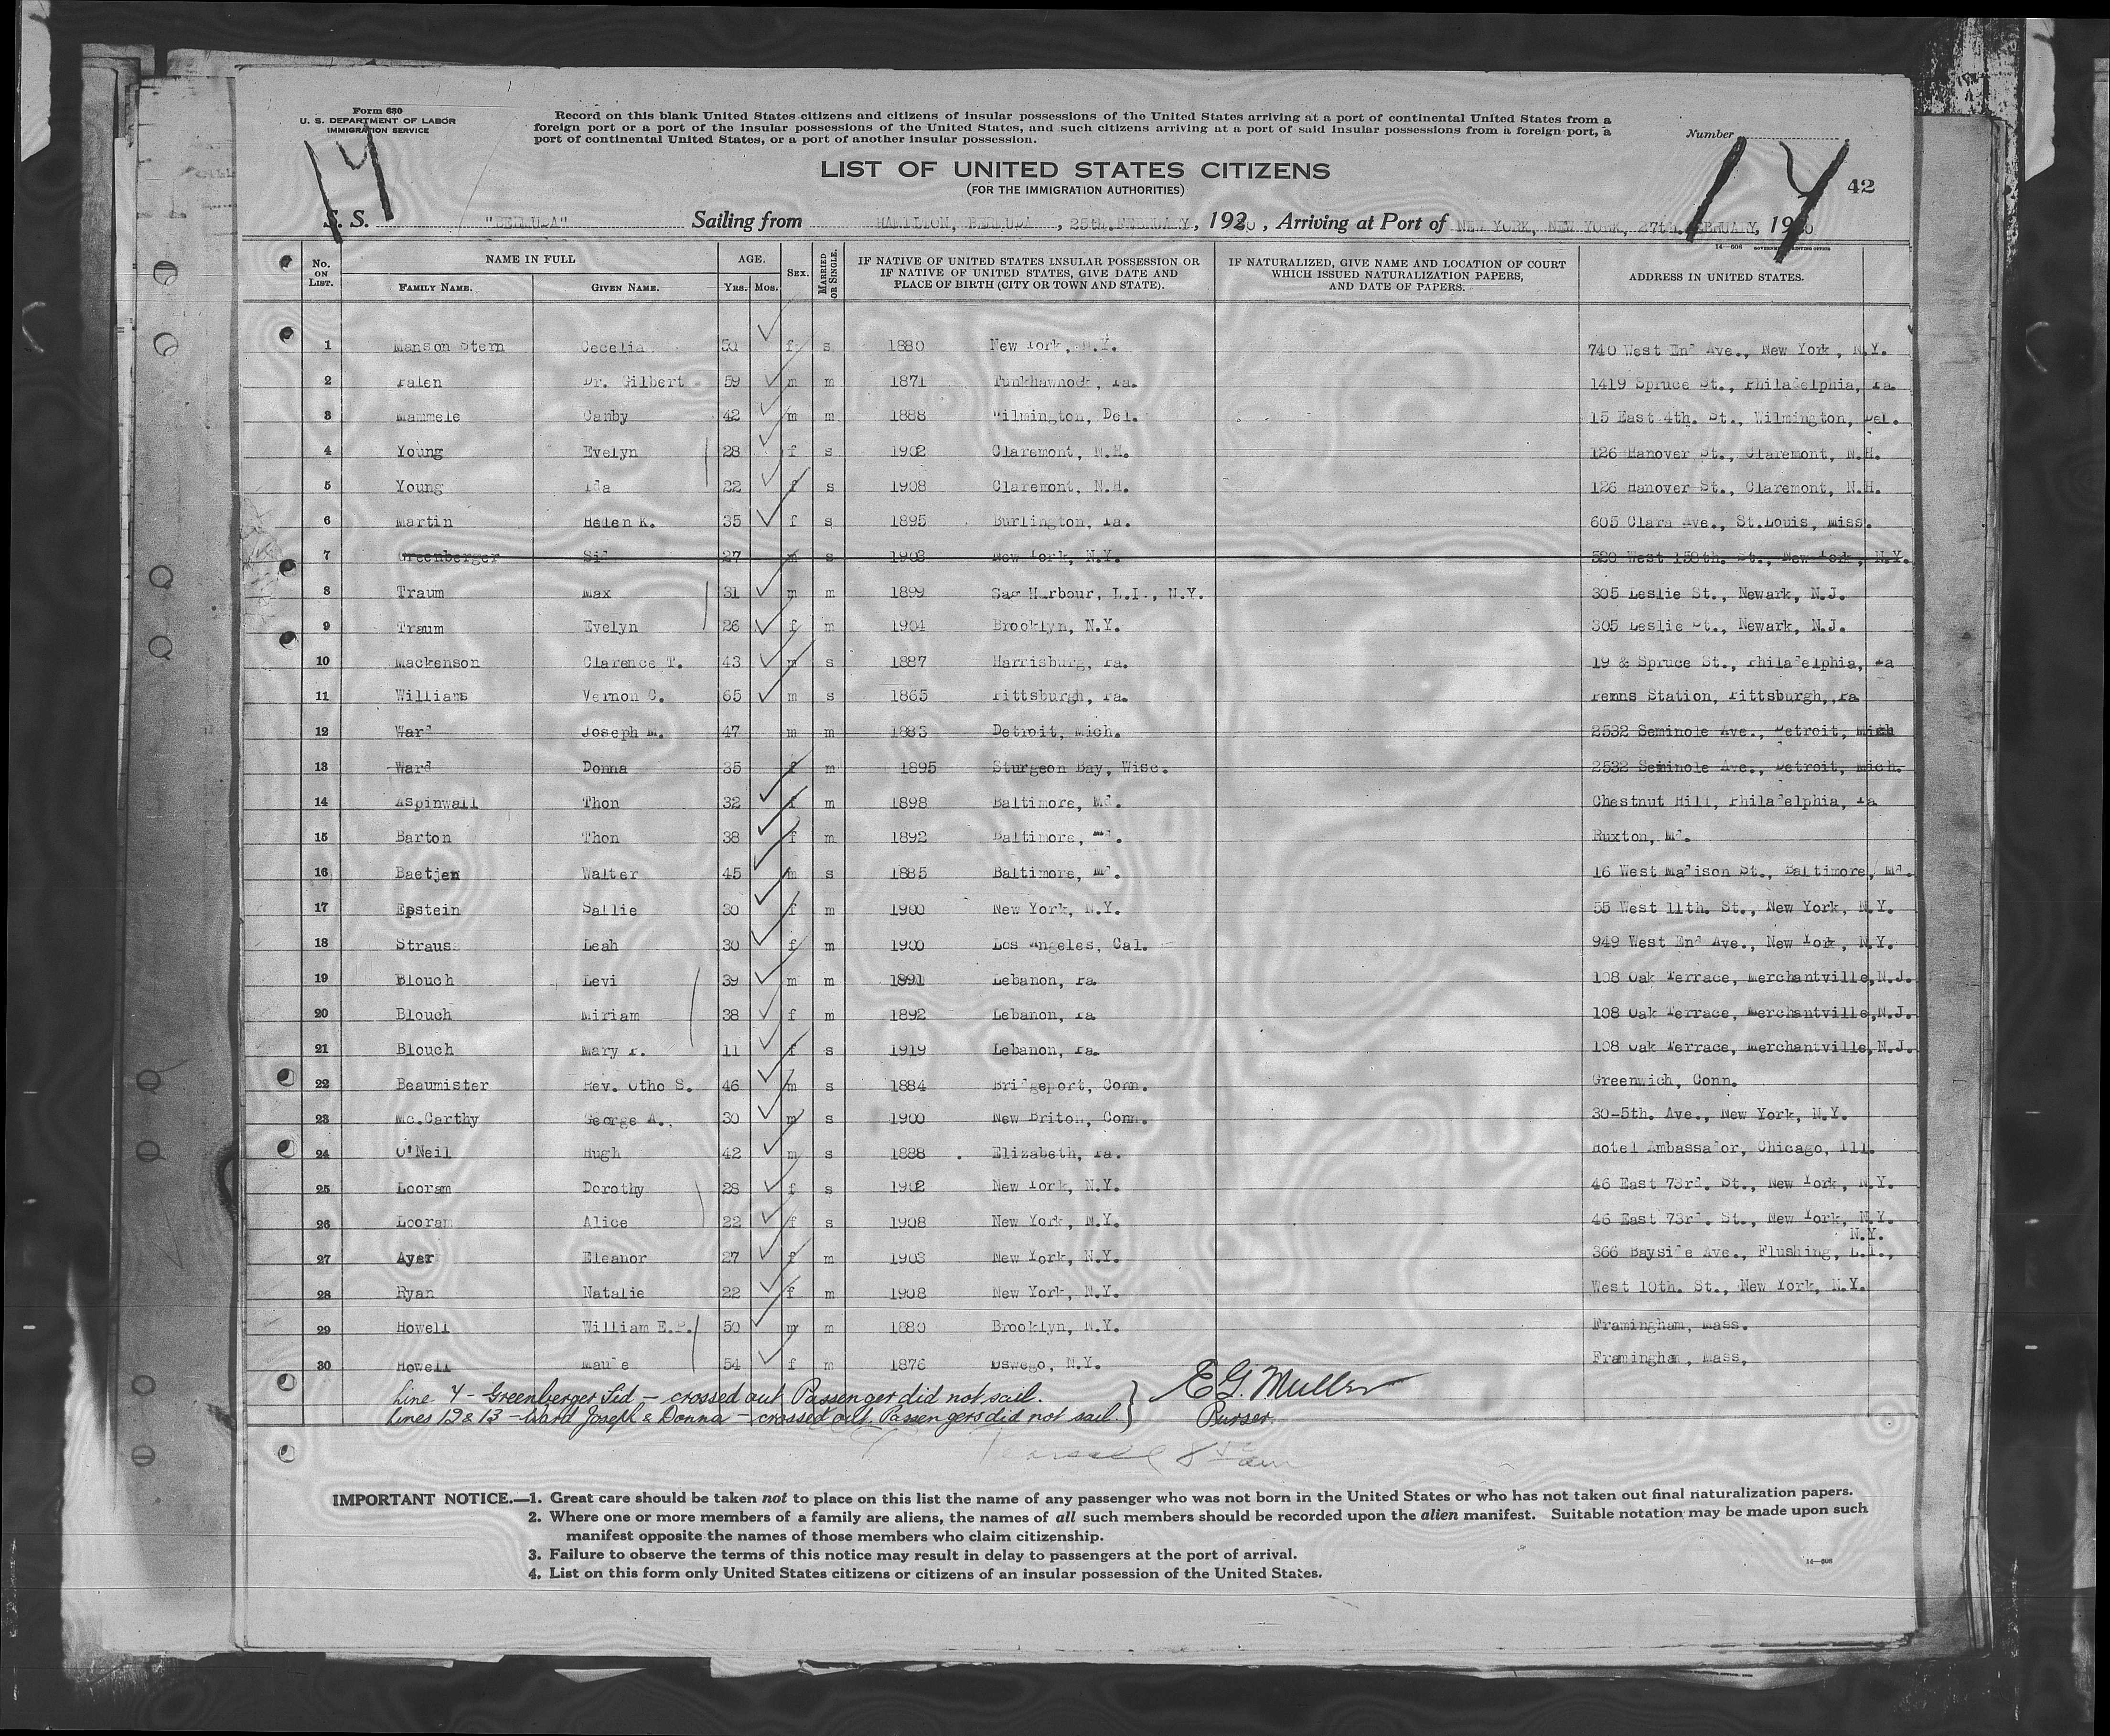 Form 630
U. S. DEPARTMENT OF LABOR
IMMIGRATION SERVICE
Record on this blank United States citizens and citizens of insular possessions of the United States arriving at a port of continental United States from a
foreign port or a port of the insular possessions of the United States, and such citizens arriving at a port of said insular possessions from a foreign port, a
port of continental United States, or a port of another insular possession.
Number
14
14
42
LIST OF UNITED STATES CITIZENS
(FOR THE IMMIGRATION AUTHORITIES)
S. S. "BERMUDA" Sailing from HAMILTON, BERMUDA, 25th. FEBRUARY, 1930, Arriving at Port of NEW YORK, NEW YORK, 27th. FEBRUARY, 1930
14—608 GOVERNMENT PRINTING OFFICE
No. ON LIST. NAME IN FULL FAMILY NAME. GIVEN NAME. AGE. YRS. MOS. SEX. MARRIED OR SINGLE. IF NATIVE OF UNITED STATES INSULAR POSSESSION OR IF NATIVE OF UNITED STATES, GIVE DATE AND PLACE OF BIRTH (CITY OR TOWN AND STATE). IF NATURALIZED, GIVE NAME AND LOCATION OF COURT WHICH ISSUED NATURALIZATION PAPERS, AND DATE OF PAPERS. ADDRESS IN UNITED STATES.
1 Manson Stern Cecelia 50 f s 1880 New York, N.Y. 740 West End Ave., New York, N.Y.
2 Palen Dr. Gilbert 59 m m 1871 Tunkhawnock, Pa. 1419 Spruce St., Philadelphia, Pa.
3 Mammele Canby 42 m m 1888 Wilmington, Del. 15 East 4th. St., Wilmington, Del.
4 Young Evelyn 28 f s 1902 Claremont, N.H. 126 Hanover St., Claremont, N.H.
5 Young Ida 22 f s 1908 Claremont, N.H. 126 Hanover St., Claremont, N.H.
6 Martin Helen K. 35 f s 1895 Burlington, Ia. 605 Clara Ave., St.Louis, Miss.
7 Greenberger Sid 27 m s 1903 New York, N.Y. 520 West 158th. St., New York, N.Y.
8 Traum Max 31 m m 1899 Sag Harbour, L.I., N.Y. 305 Leslie St., Newark, N.J.
9 Traum Evelyn 26 f m 1904 Brooklyn, N.Y. 305 Leslie St., Newark, N.J.
10 Mackenson Clarence T. 43 m s 1887 Harrisburg, Pa. 19 & Spruce St., Philadelphia, Pa
11 Williams Vernon C. 65 m s 1865 Pittsburgh, Pa. Penns Station, Pittsburgh,,Pa
12 Ward Joseph M. 47 m m 1883 Detroit, Mich. 2532 Seminole Ave., Detroit, Mich
13 Ward Donna 35 f m 1895 Sturgeon Bay, Wisc. 2532 Seminole Ave., Detroit, Mich.
14 Aspinwall Thon 32 f m 1898 Baltimore, Md. Chestnut Hill, Philadelphia, Pa
15 Barton Thon 38 f m 1892 Baltimore, Md. Ruxton, Md.
16 Baetjen Walter 45 m s 1885 Baltimore, Md. 16 West Madison St., Baltimore, Md.
17 Epstein Sallie 30 f m 1900 New York, N.Y. 55 West 11th. St., New York, N.Y.
18 Strauss Leah 30 f m 1900 Los Angeles, Cal. 949 West End Ave., New York, N.Y.
19 Blouch Levi 39 m m 1891 Lebanon, Pa 108 Oak Terrace, Merchantville,N.J.
20 Blouch Miriam 38 f m 1892 Lebanon, Pa 108 Oak Terrace, Merchantville,N.J.
21 Blouch Mary P. 11 f s 1919 Lebanon, Pa. 108 Oak Terrace, Merchantville,N.J.
22 Beaumister Rev. Otho S. 46 m s 1884 Bridgeport, Conn. Greenwich, Conn.
23 Mc.Carthy George A. 30 m s 1900 New Briton, Conn. 30-5th. Ave., New York, N.Y.
24 O'Neil Hugh 42 m s 1888 Elizabeth, Pa. Hotel Ambassador, Chicago, Ill.
25 Looram Dorothy 28 f s 1902 New York, N.Y. 46 East 73rd. St., New York, N.Y.
26 Looram Alice 22 f s 1908 New York, N.Y. 46 East 73rd. St., New York, N.Y.
N.Y.
27 Ayer Eleanor 27 f m 1903 New York, N.Y. 366 Bayside Ave., Flushing, L.I.,
28 Ryan Natalie 22 f m 1908 New York, N.Y. West 10th. St., New York, N.Y.
29 Howell William E.P. 50 m m 1880 Brooklyn, N.Y. Framingham, Mass.
30 Howell Maude 54 f m 1876 Oswego, N.Y. Framingham, Mass.
Line 7 - Greenberger Sid - crossed out Passenger did not sail.
Lines 12 & 13 - Ward Joseph & Donna - crossed out. Passengers did not sail.
E G. Muller
Purser.
IMPORTANT NOTICE.—1. Great care should be taken not to place on this list the name of any passenger who was not born in the United States or who has not taken out final naturalization papers.
2. Where one or more members of a family are aliens, the names of all such members should be recorded upon the alien manifest. Suitable notation may be made upon such
manifest opposite the names of those members who claim citizenship.
3. Failure to observe the terms of this notice may result in delay to passengers at the port of arrival.
4. List on this form only United States citizens or citizens of an insular possession of the United States.
14—608